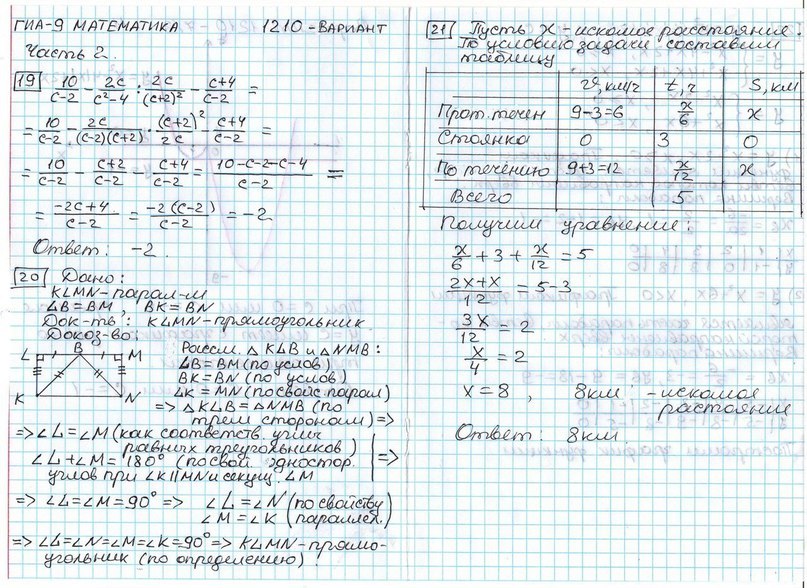 ГИА-9 МАТЕМАТИКА 1210-ВАРИАНТ
Часть 2.
19 10/(c-2) - 2c/(c²-4) : 2c/(c+2)² - (c+4)/(c-2) =
= 10/(c-2) - 2c/((c-2)(c+2)) · (c+2)²/2c - (c+4)/(c-2) =
= 10/(c-2) - (c+2)/(c-2) - (c+4)/(c-2) = (10-c-2-c-4)/(c-2) =
= (-2c+4)/(c-2) = -2(c-2)/(c-2) = -2
Ответ: -2.
20 Дано:
KLMN-парал-м
LB=BM, BK=BN
Док-ть: KLMN-прямоугольник
Доказ-во:
L B M
K N
Рассм. △KLB и △NMB:
LB=BM (по услов)
BK=BN (по услов)
LK=MN (по свойс. парал)
=> △KLB=△NMB (по
трем сторонам) =>
=> ∠L=∠M (как соответств. углы
равных треугольников)
∠L+∠M=180° (по свой. одностор.
углов при LK||MN и секущ. LM
=>
=> ∠L=∠M=90° => ∠L=∠N (по свойству
∠M=∠K (параллел.)
=> ∠L=∠N=∠M=∠K=90° => KLMN-прямо-
угольник (по определению).
21 Пусть x-искомое расстояние.
По условию задачи составим
таблицу
v, км/ч t, ч S, км
Прот. течен 9-3=6 x/6 x
Стоянка 0 3 0
По течению 9+3=12 x/12 x
Всего 5
Получим уравнение:
x/6 + 3 + x/12 = 5
(2x+x)/12 = 5-3
3x/12 = 2
x/4 = 2
x=8, 8км - искомое
растояние
Ответ: 8км.